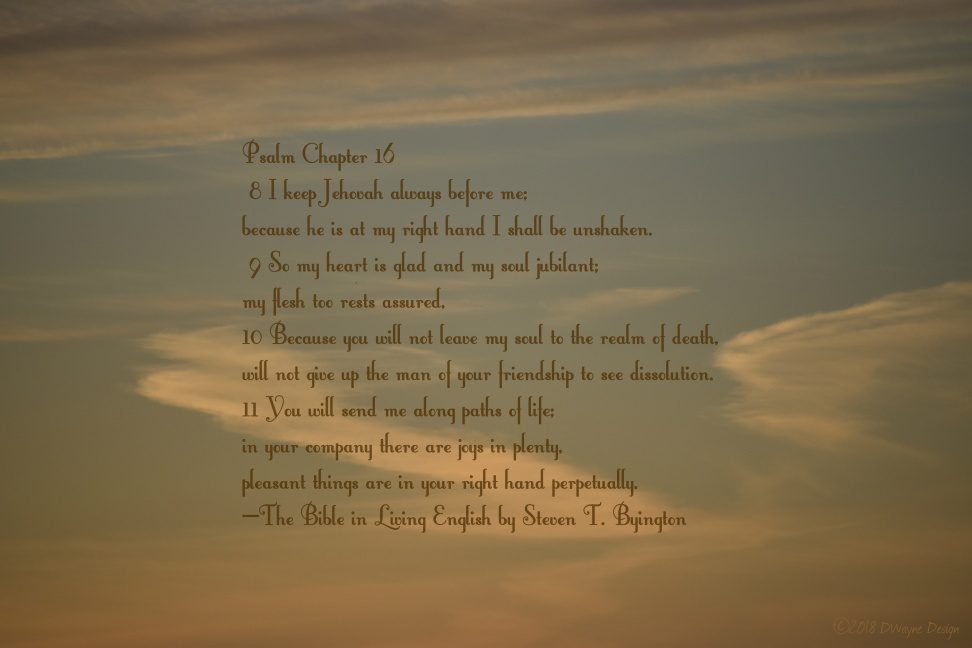 Psalm Chapter 16
8 I keep Jehovah always before me;
because he is at my right hand I shall be unshaken.
9 So my heart is glad and my soul jubilant;
my flesh too rests assured,
10 Because you will not leave my soul to the realm of death,
will not give up the man of your friendship to see dissolution.
11 You will send me along paths of life;
in your company there are joys in plenty,
pleasant things are in your right hand perpetually.
—The Bible in Living English by Steven T. Byington
©2018 DWayne Design